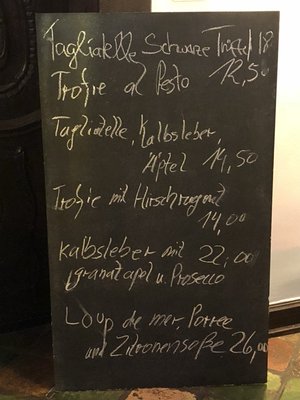 Tagliatelle Schwarze Trüffel 18
Trofie al Pesto 12,50
Tagliatelle, Kalbsleber,
Äpfel 14,50
Trofie mit Hirschragout
14,00
Kalbsleber mit 22,00
granatapfel u. Prosecco
Loup de mer, Porree
und Zitronensoße 26,00